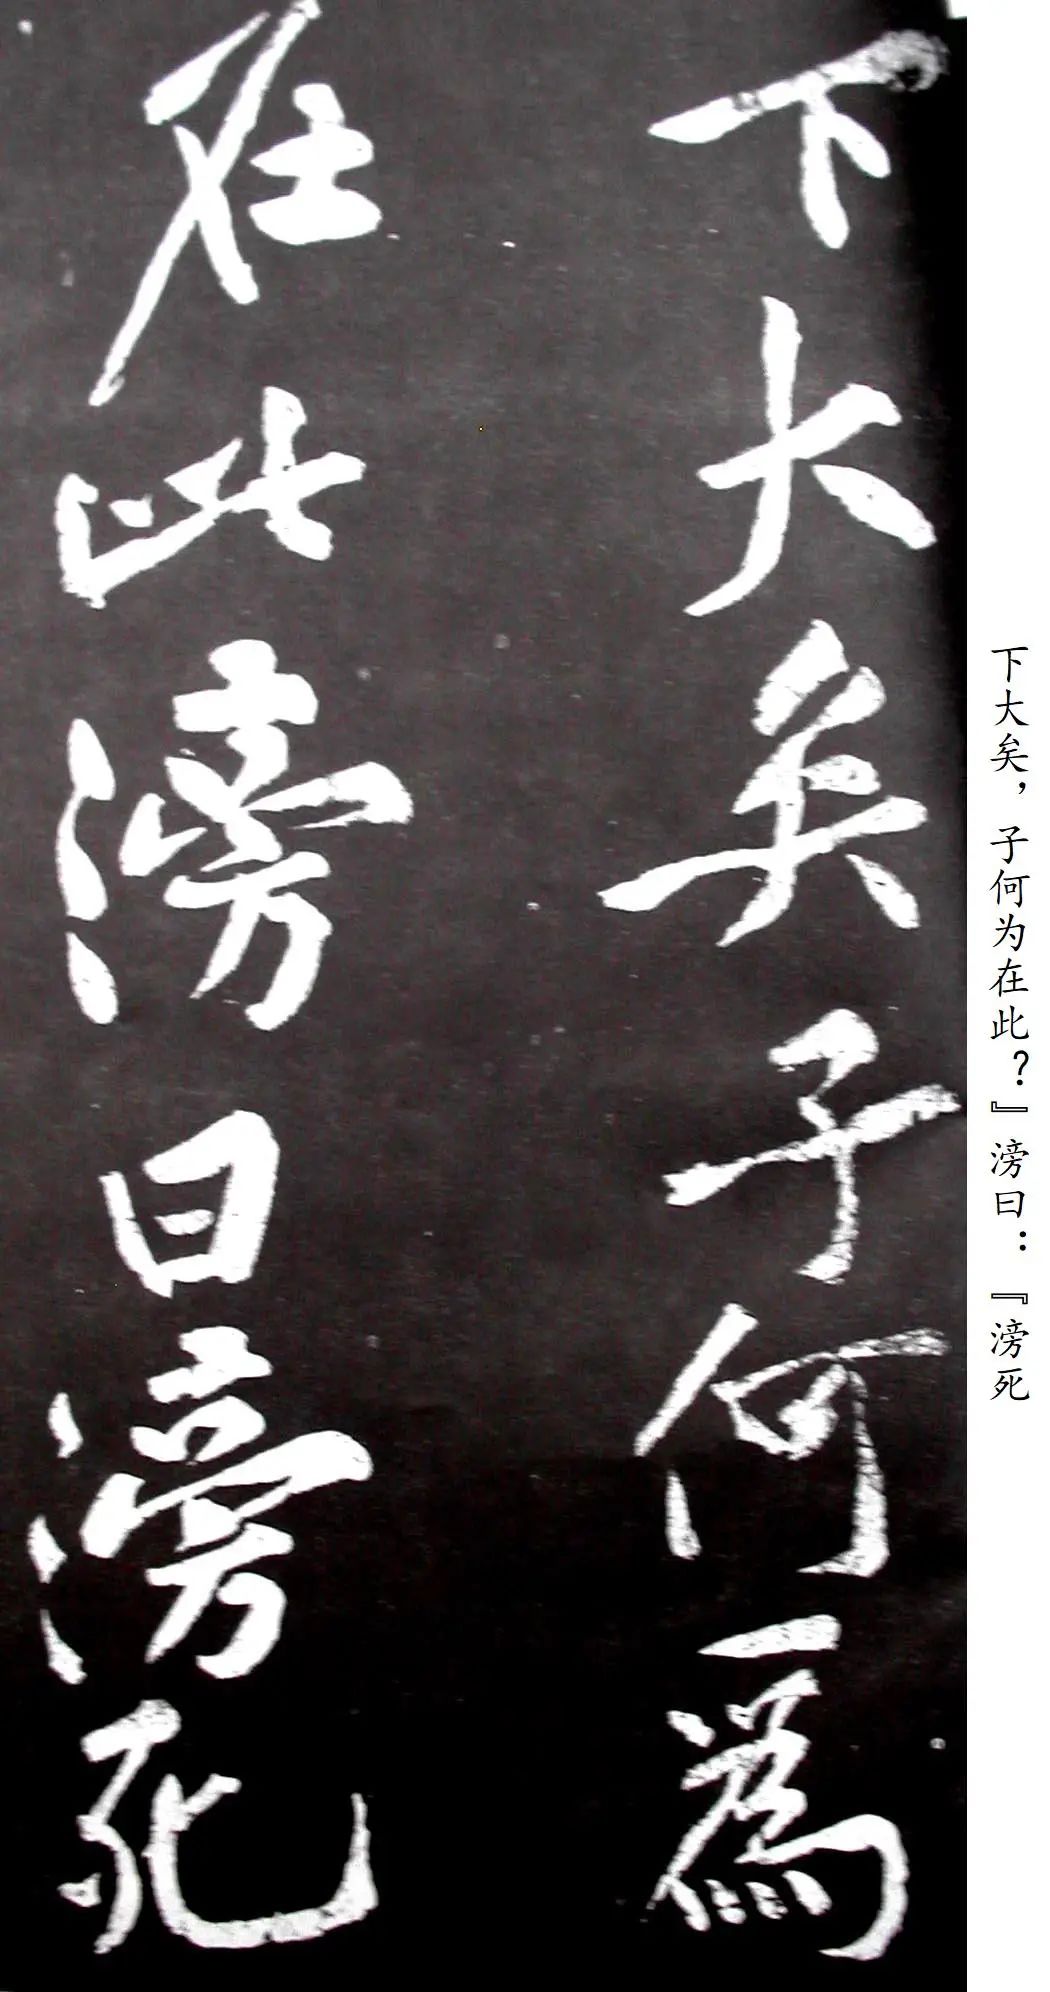 下大矣子何為
在此滂曰滂死
下大矣，子何为在此？』滂曰：『滂死